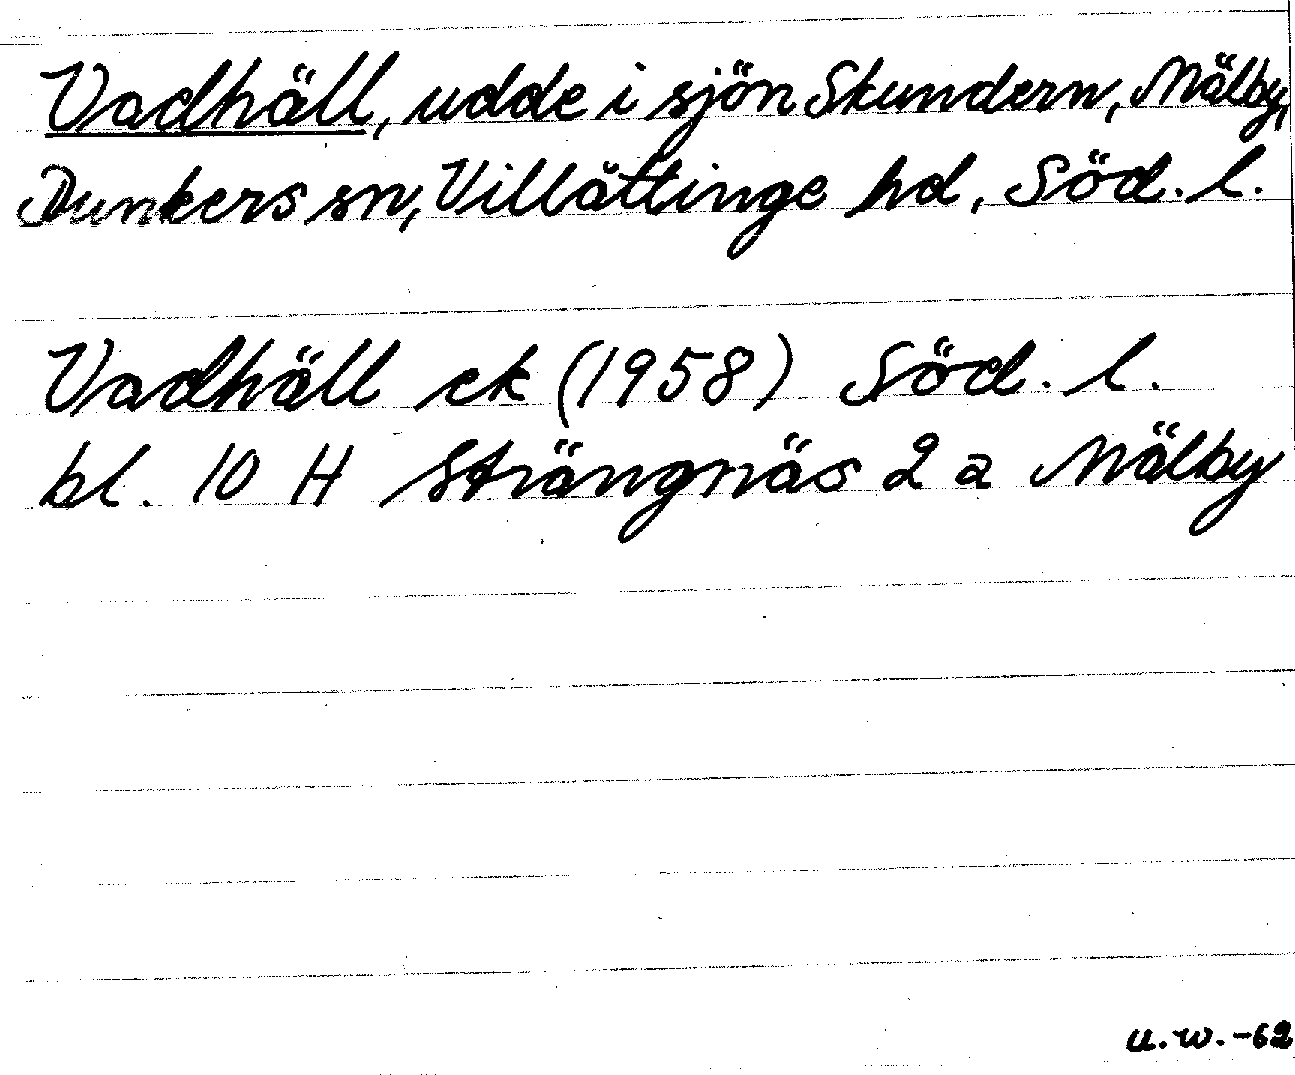 Vadhäll, udde i sjön Skundern, Mälby,
Dunkers sn, Villåttinge hd, Söd. l.
Vadhäll ek (1958) Söd. l.
bl. 10 H Strängnäs 2 a Mälby
u.w.-62